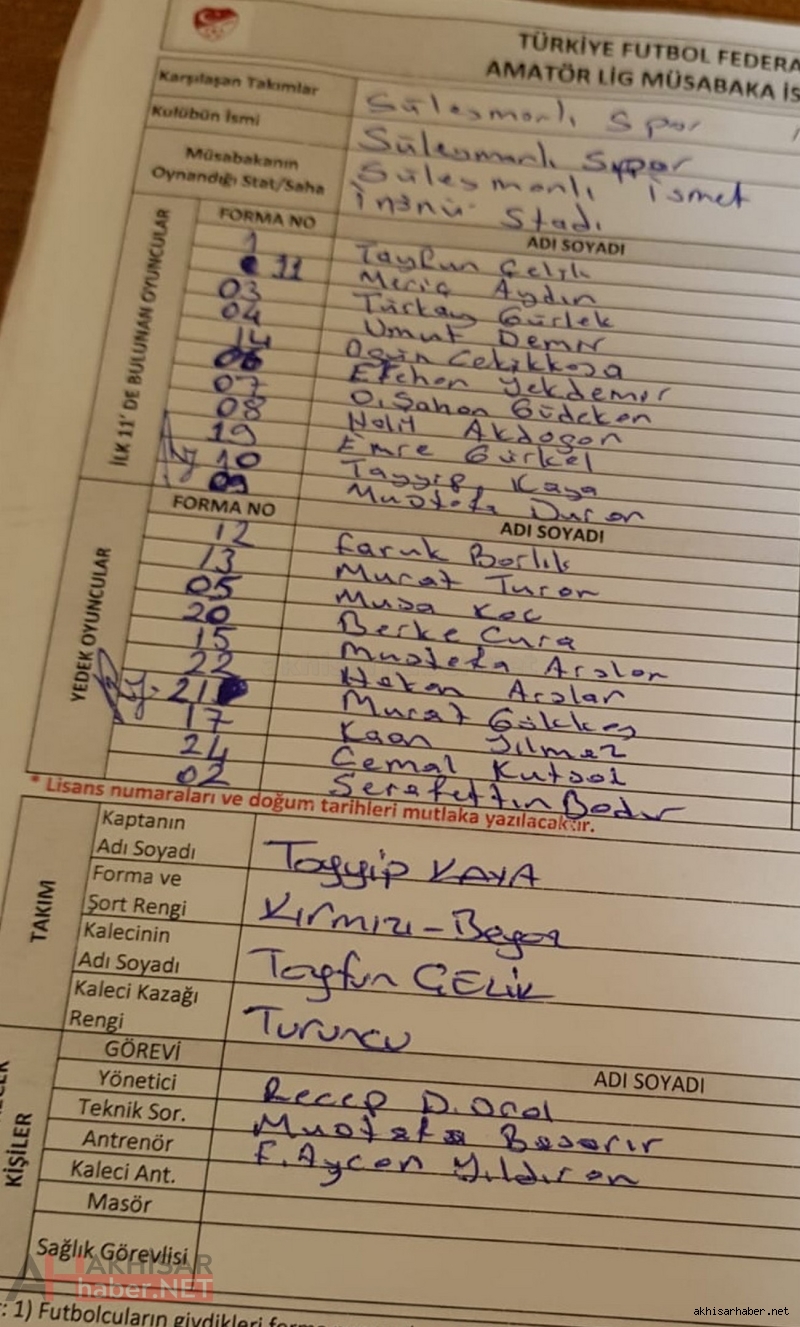 TÜRKİYE FUTBOL FEDERA
AMATÖR LİG MÜSABAKA İS
Karşılaşan Takımlar Süleymanlı Spor
Kulübün İsmi Süleymanlı Spor
Müsabakanın Oynandığı Stat/Saha Süleymanlı İsmet
İnönü Stadı
İLK 11' DE BULUNAN OYUNCULAR
FORMA NO ADI SOYADI
1 Tayfun Çelik
11 Meriç Aydın
03 Türkay Gürlek
04 Umut Demir
14 Ogün
06 Erchan Yekdemir
07 O.Şahan Güdekan
08 Halil Akdoğan
19 Emre Gürkel
10 Tayyip Kaya
09 Mustafa Duran
YEDEK OYUNCULAR
FORMA NO ADI SOYADI
12 Faruk Barlık
13 Murat Turan
05 Musa Koç
20 Berke Cura
15 Mustafa Arslan
22 Hakan Arslan
21 Murat Gökkeş
17 Kaan Yılmaz
24 Cemal Kutsal
02 Serafettin Badır
* Lisans numaraları ve doğum tarihleri mutlaka yazılacaktır.
TAKIM
Kaptanın Adı Soyadı Tayyip KAYA
Forma ve Şort Rengi Kırmızı-Beyaz
Kalecinin Adı Soyadı Tayfun ÇELİK
Kaleci Kazağı Rengi Turuncu
KİŞİLER
GÖREVİ ADI SOYADI
Yönetici Recep D.
Teknik Sor. Mustafa Başarır
Antrenör F.Aycan Yıldıran
Kaleci Ant.
Masör
Sağlık Görevlisi
AKHİSAR
haber.NET
r: 1) Futbolcuların giydikleri
akhisarhaber.net